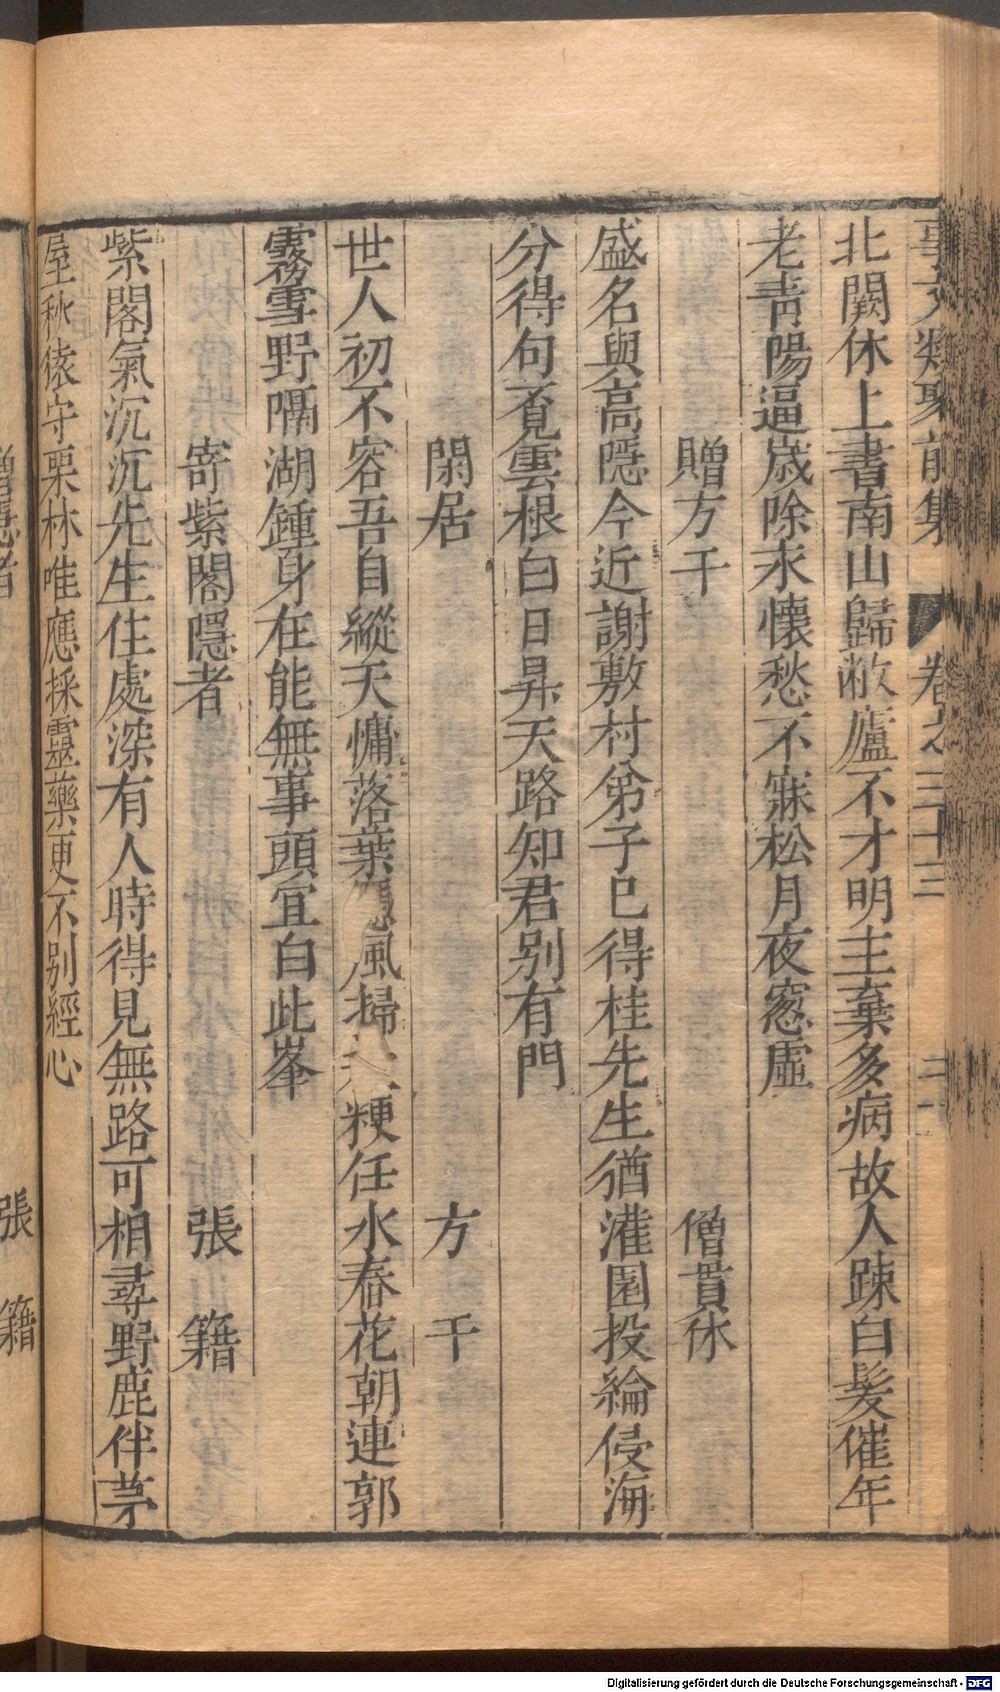 事文類聚前集 卷之三十三 二
北闕休上書南山歸敝廬不才明主棄多病故人踈白髮催年
老靑陽逼歲除永懷愁不寐松月夜窓虛
贈方干 僧貫休
盛名與高隱今近謝敷村弟子已得桂先生猶灌園投綸侵海
分得句覓雲根白日昇天路知君别有門
閑居 方干
世人初不容吾自縱天慵落葉憑風掃 粳任水舂花朝連郭
霧雪野隔湖鍾身在能無事頭宜白此峯
寄紫閣隱者 張籍
紫閣氣沉沉先生住處深有人時得見無路可相尋野鹿伴茅
屋秋猿守栗林唯應採靈藥更不别經心
張籍
Digitalisierung gefördert durch die Deutsche Forschungsgemeinschaft - DFG